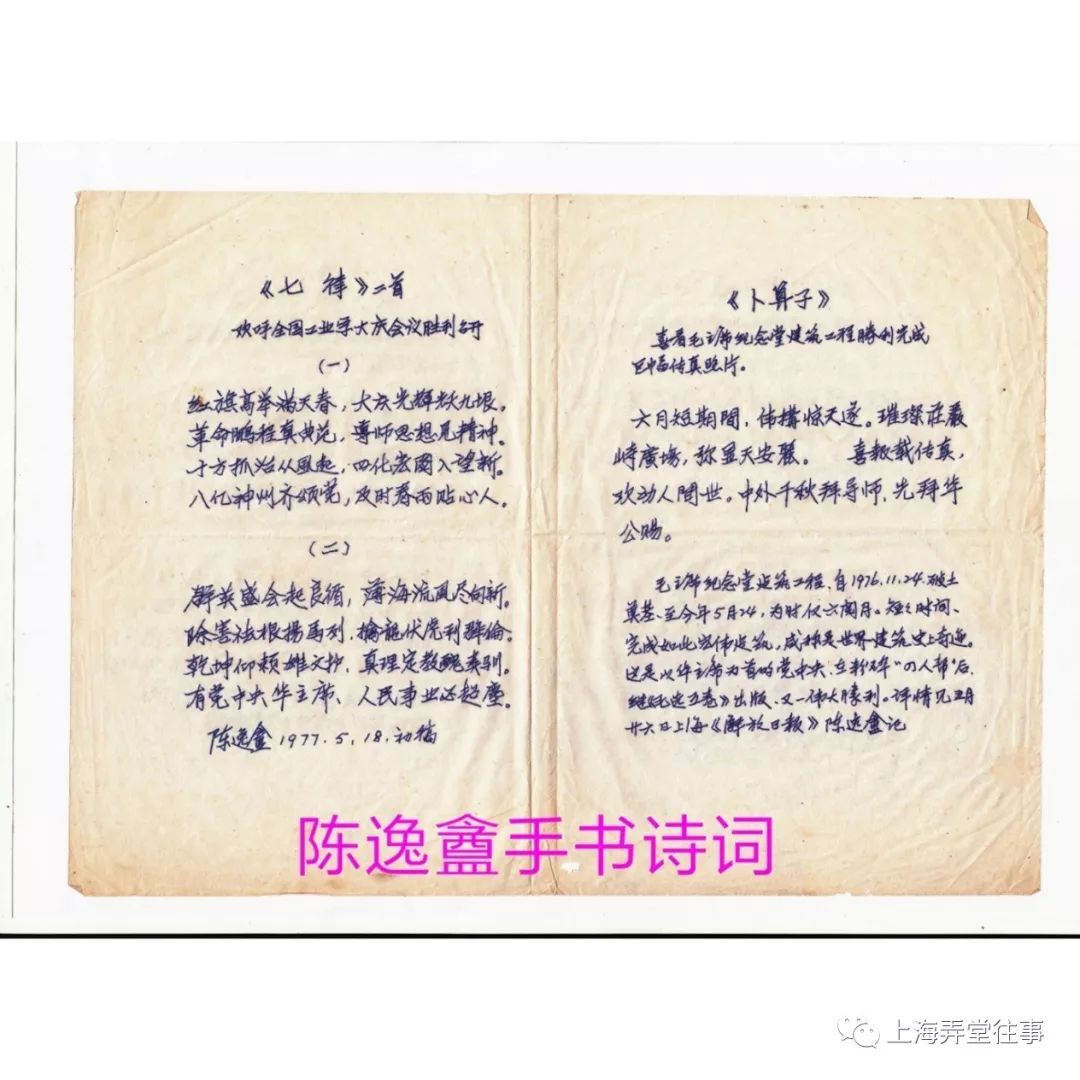 《七律》二首
欢呼全国工业学大庆会议胜利召开
(一)
红旗高举满天春，大庆光辉耀九垠。
革命鹏程真典范，导师思想见精神。
十方抓治从风起，四化宏图入望新。
八亿神州齐颂党，及时春雨贴心人。
(二)
群英盛会起良循，薄海流风尽向新。
除害祛根揚馬列，擒龍伏虎利群倫。
乾坤仰赖雄文护、真理定教醜类驯。
有党中央华主席、人民事业还超尘。
陈逸鑫1977.5.18.初稿
《卜算子》
喜看毛主席纪念堂建筑工程勝利完成
巨幅传真照片。
六月短期間，伟構惊天遂。璀璨莊严
峙廣場，称显天安麗。 喜报载传真，
欢动人間世。中外千秋拜导师，先拜华
公赐。
毛主席纪念堂建筑工程，自1976.11.24.破土
奠基、至今年5月24，为时仅六阅月。短短时间、
完成如此宏伟建筑，咸称是世界建筑史上奇迹。
这是以华主席为首的党中央、在粉碎“四人帮”后、
继《毛选五卷》出版、又一伟大勝利。详情见五月
廿六日上海《解放日报》陈逸鑫记
陈逸鑫手书诗词
上海弄堂往事